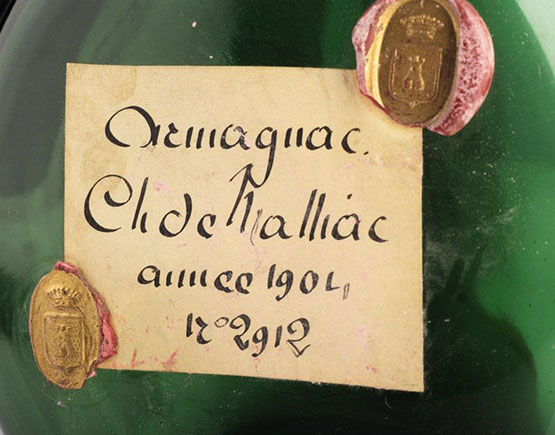 Armagnac.
Ch de Malliac
année 1904
n° 2912